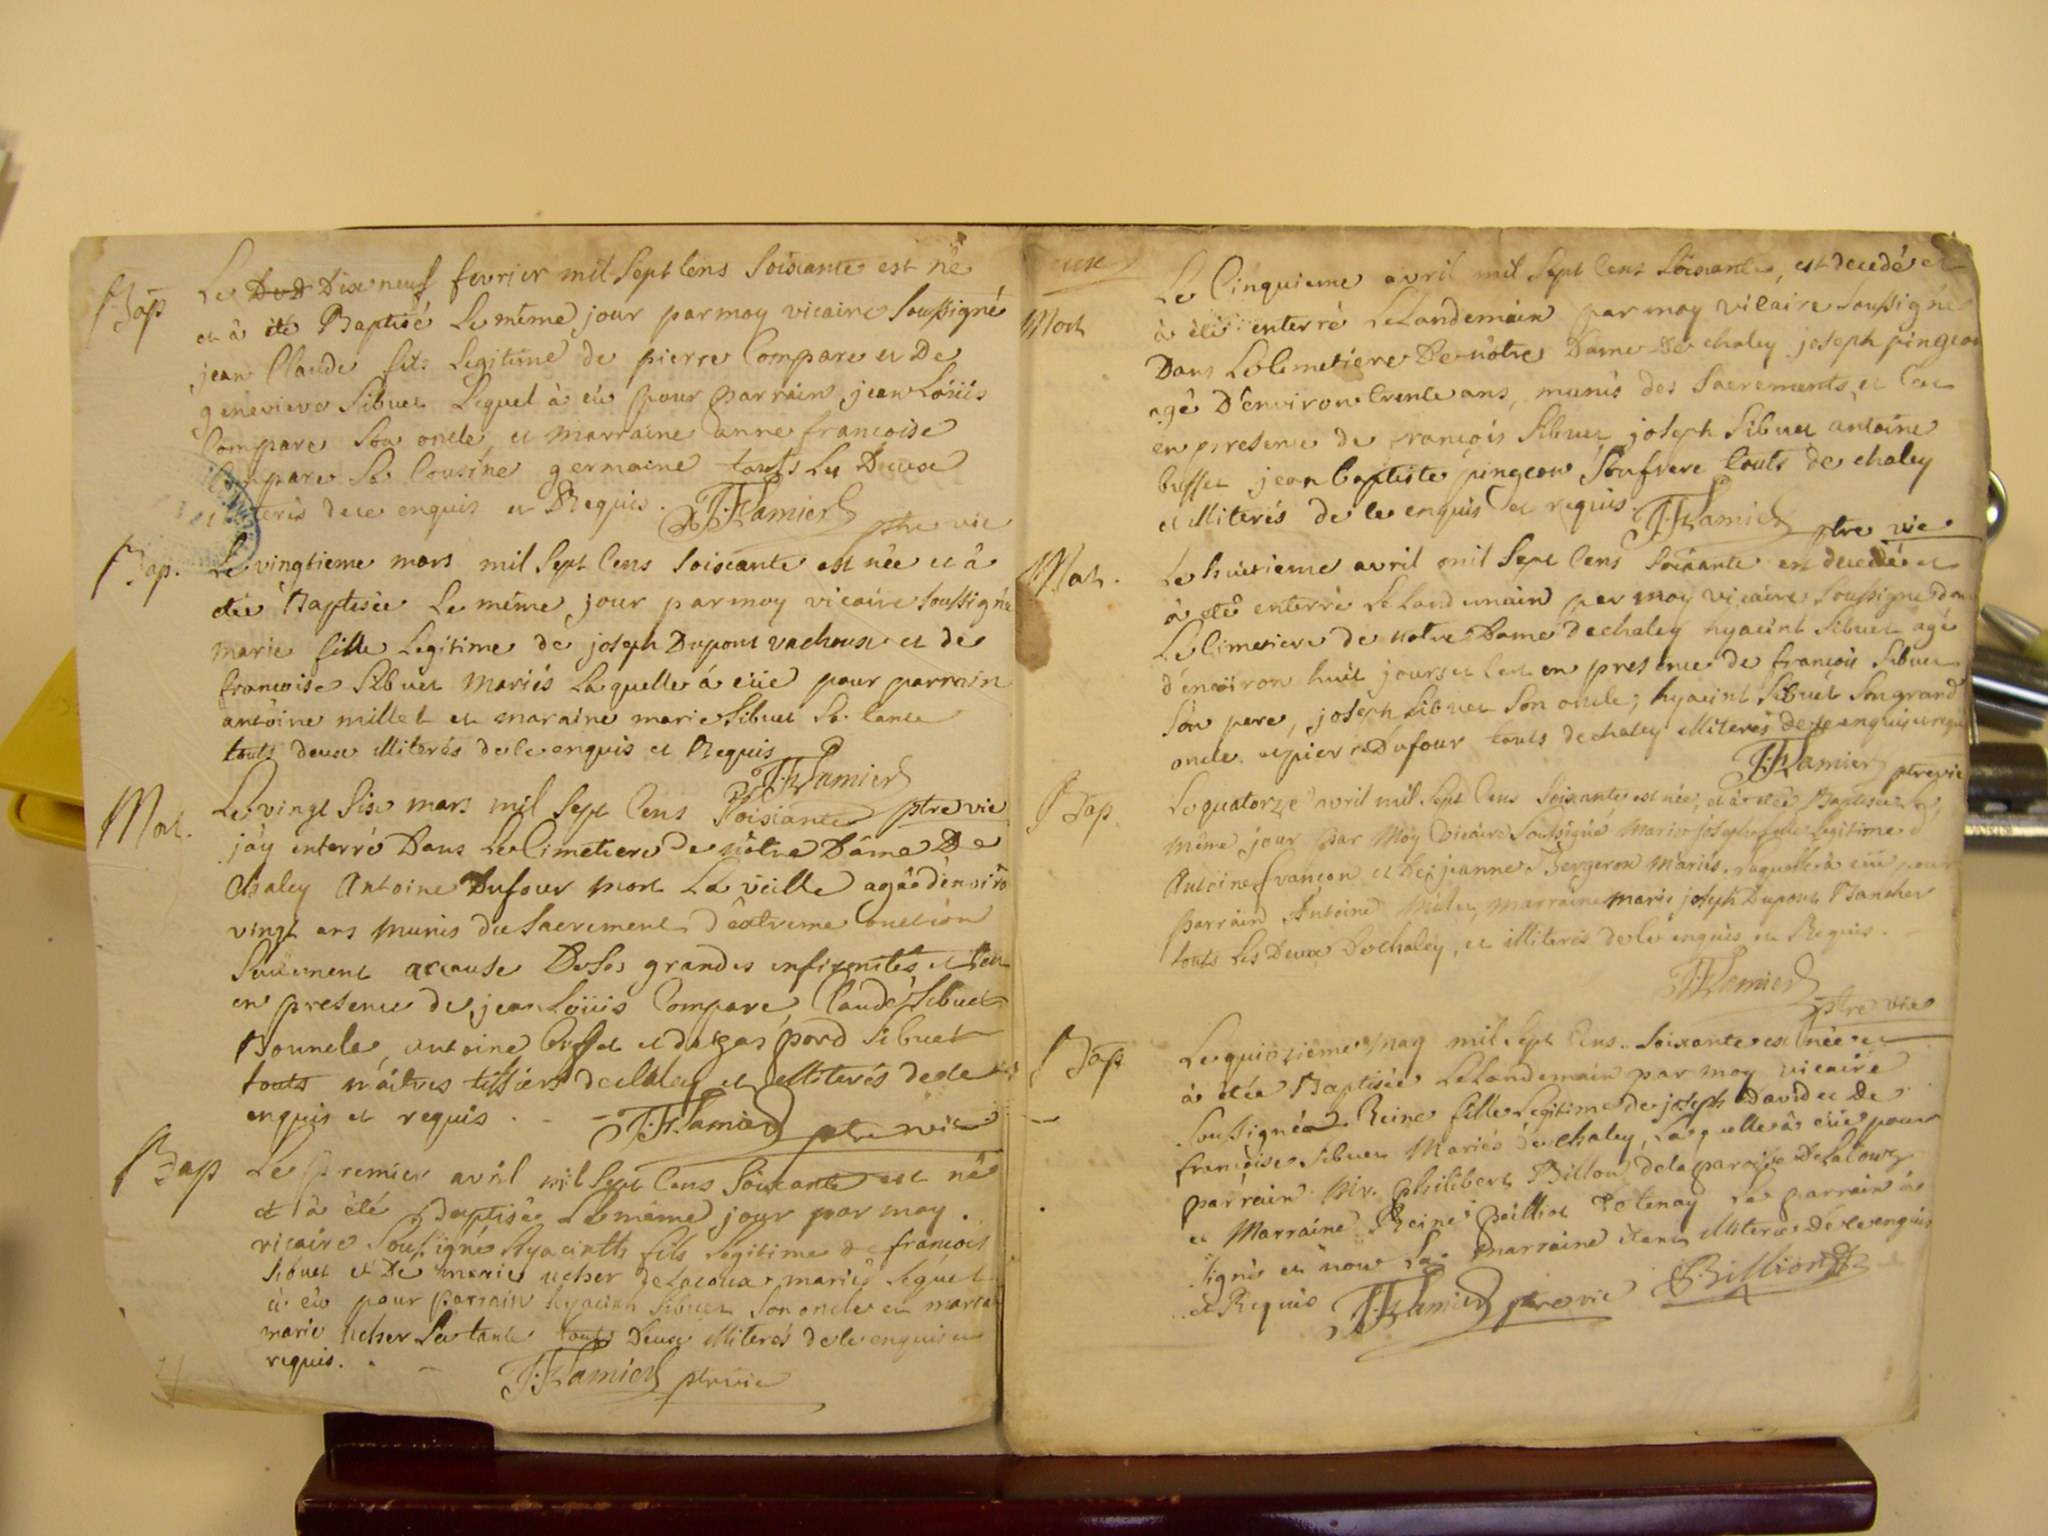 Bap
Le Dixneuf fevrier mil Sept Cens Soixante est né
et à été Baptisé Le même jour par moy vicaire Soussigné
jean Claude fils Legitime de pierre Compare et De
genevieve Sibuet Lequel à eû pour parrain jean Loüis
Compare Son oncle, et marraine anne francoise
Compare Sa Cousine germaine touts Les Deux
illiterés de ce enquis et Requis. ptre vic
Bap.
Le vingtieme mars mil Sept Cens Soixante est née et à
étée Baptisée Le même jour par moy vicaire Soussigné
marie fille Legitime de joseph Dupont vachoux et de
francoise Sibuet mariés Laquelle à eüe pour parrain
antoine millet et maraine marie Sibuet Sa tante
touts deux illiterés de ce enquis et Requis
ptre vic
Mort.
Le vingt Six mars mil Sept Cens Soixante
j'ay enterré Dans Le Cimetiere de nôtre Dame De
Chaley Antoine Dufour mort La veille agée d'environ
vingt ans munis du Sacrement d'extreme onction
Seulement accause De Ses grandes infirmités et Cen
en presence de jean Loüis Compare, Claude Sibuet
Bouncle, antoine buffet et Sibuet
touts maitres tissiers de chaley et illiterés de ce
enquis et requis. ptre vic
Bap
Le premier avril mil Sept Cens Soixante est né
et à été Baptisé Le même jour par moy
vicaire Soussigné Hyacinth fils Legitime de francois
Sibuet et De marie ucher mariés Lequel
à eû pour parrain hyacinth Sibuet Son oncle et marrai
marie ucher Sa tante touts Deux illiterés de ce enquis et
requis. ptre vic
Mort
Le Cinquieme avril mil Sept Cens Soixante, est decedé et
à été enterré Le Landemain par moy vicaire Soussigné
Dans Le Cimetiere De nôtre Dame De chaley joseph pingeon
agé D'environ trente ans, munis des Sacrements, et Cet
en presence de françois Sibuet joseph Sibuet antoine
buffet jean baptiste pingeon Son frere touts de chaley
et illiterés de ce enquis et requis. ptre vic
Mort.
Le huitieme avril mil Sept Cens Soixante est decedé et
à été enterré Le Landemain par moy vicaire Soussigné dan
Le Cimetiere de notre Dame de chaley hyacint Sibuet agé
d'environ huit jours et Cet en presence de françois Sibuet
Son pere, joseph Sibuet Son oncle; hyacint Sibuet Son grand
oncle et pierre Dufour touts de chaley illiterés de ce enquis et requis
ptre vic
Bap
Le quatorze avril mil Sept Cens Soixante est née, et à étée Baptisée Le
même jour par Moy vicaire Soussigné Marie joseph fille Legitime d
Antoine françon et De jeanne Bergeron Mariés. Laquelle à eüe pour
parrain Antoine Millet, marraine marie joseph Dupont Blancher
touts Les Deux De chaley, et illiterés de ce enquis et Requis.
ptre vic
Bap
Le quinzieme may mil Sept Cens Soixante est née et
à étée Baptisée Le Landemain par moy vicaire
Soussigné Reine fille Legitime de joseph David et De
françoise Sibuet Mariés de chaley, Laquelle à eüe pour
parrain Mr. Philibert Billion de la paroisse
et Marraine Reine Le parrain à
Signé et nous La marraine étant illiterée De ce enquis
et Requis ptre vic Billion